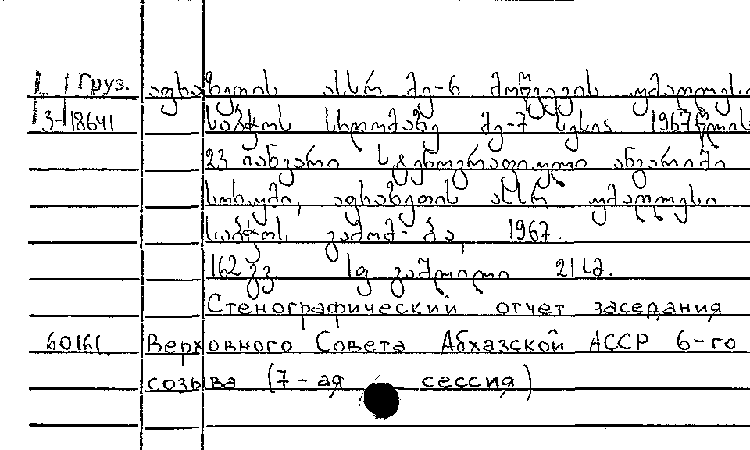 Груз. აფხაზეთის ასსრ მე-6 მოწვევის უმაღლესი
3-18641 საბჭოს სხდომაზე მე-7 სესია 1967 წლის
23 იანვარი სტენოგრაფიული ანგარიში
სოხუმი, აფხაზეთის ასსრ უმაღლესი
საბჭოს გამომ-ბა, 1967.
162 გვ 1 ფ გაშლილი 21 სმ.
Стенографический отчет заседания
60161 Верховного Совета Абхазской АССР 6-го
созыва (7-ая сессия)